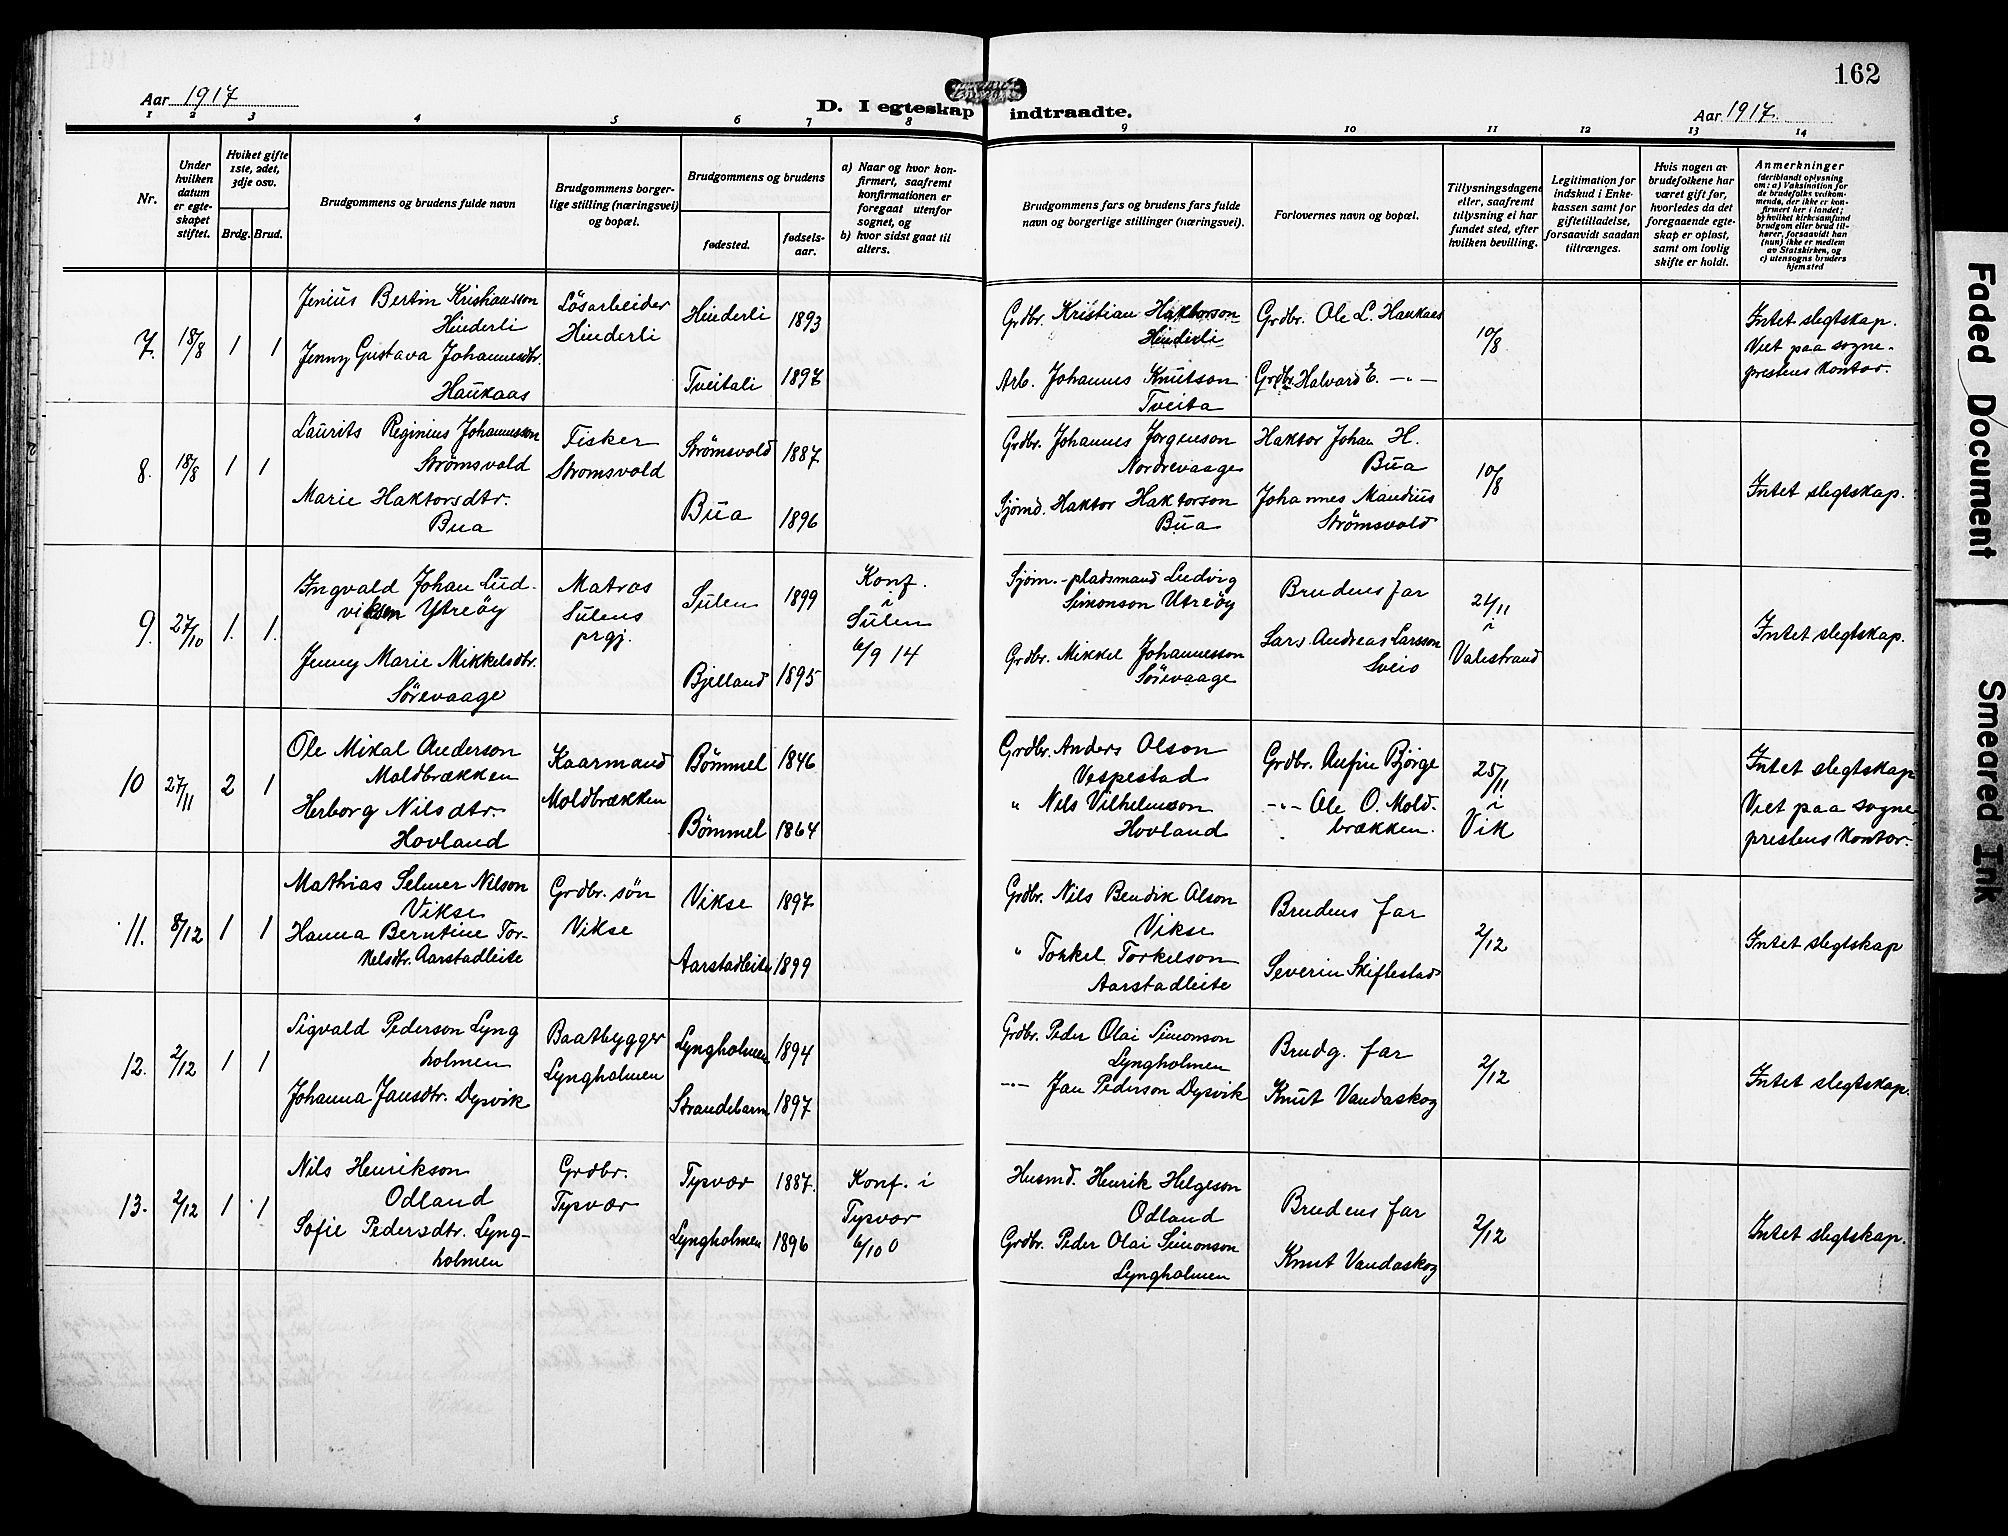 162
Aar 1917
D. I egteskap indtraadte.
Aar 1917.
1 2 3 4 5 6 7 8 9 10 11 12 13 14
Nr.
Under hvilken datum er egteskapet stiftet.
Hviket gifte 1ste, 2det, 3dje osv.
Brdg. Brud.
Brudgommens og brudens fulde navn
Brudgommens borgerlige stilling (næringsvei) og bopæl.
Brudgommens og brudens
fødested.
fødselsaar.
a) Naar og hvor konfirmert, saafremt konfirmationen er foregaat utenfor sognet, og
b) hvor sidst gaat til alters.
Brudgommens fars og brudens fars fulde navn og borgerlige stillinger (næringsvei).
Forlovernes navn og bopæl.
Tillysningsdagene eller, saafremt tillysning ei har fundet sted, efter hvilken bevilling.
Legitimation for indskud i Enkekassen samt for giftetilladelse, forsaavidt saadan tiltrænges.
Hvis nogen av brudefolkene har været gift før, hvorledes da det foregaaende egteskap er opløst, samt om lovlig skifte er holdt.
Anmerkninger (deriblandt oplysning om: a) Vaksination for de brudefolks vedkommende, der ikke er konfirmert her i landet; b) hvilket kirkesamfund brudgom eller brud tilhører, forsaavidt han (hun) ikke er medlem av Statskirken, og c) utensogns bruders hjemsted
7. 18/8 1 1
Jenius Bertin Kristiansson
Hinderli
Jenny Gustava Johannesdtr.
Haukaas
Løsarbeider
Hinderli
Hinderli 1893
Tveitali 1897
Grdbr. Kristian Haktorson
Hinderli
Arb. Johannes Knutson
Tveita
Grdbr. Ole L. Haukaas
Grdbr. Halvard E. -"-
10/8
Intet slegtskap.
Viet paa sogne-
prestens kontor.
8. 18/8 1 1
Laurits Reginius Johannesson
Strømsvold
Marie Haktorsdtr.
Bua
Fisker
Strømsvold
Strømsvold 1887
Bua 1896
Grdbr. Johannes Jørgenson
Nordrevaage
Sjømd. Haktor Haktorson
Bua
Haktor Johan H.
Bua
Johannes Mandius
Strømsvold
10/8
Intet slegtskap.
9. 27/10 1. 1.
Ingvald Johan Lud-
viksen Ytreøy
Jenny Marie Mikkelsdtr.
Sørevaage
Matros
Sulens
prgj.
Sulen 1899
Bjelland 1895
Konf.
i
Sulen
6/9 14
Sjøm.-pladsmand Ludvig
Simonson Utreøy
Grdbr. Mikkel Johannesson
Sørevaage
Brudens far
Lars Andreas Larsson
Sveio
21/11
i
Valestrand
Intet slegtskap.
10 27/11 2 1
Ole Mikal Anderson
Moldbrækken
Herborg Nilsdtr.
Hovland
Kaarmand
Moldbrækken
Bømmel 1846
Bømmel 1864
Grdbr. Anders Olson
Vespestad
" Nils Vilhelmson
Hovland
Grdbr. Anfin Bjørge
-"- Ole O. Mold-
brækken.
25/11
i
Vik
Intet slegtskap
Viet paa sogne
prestens kontor.
11. 8/12 1 1
Mathias Selmer Nilson
Vikse
Hanna Berntine Tor-
kelsdtr. Aarstadleite
Grdbr. søn
Vikse
Vikse 1897
Aarstadleite 1899
Grdbr. Nils Bendik Olson
Vikse
" Torkel Torkelson
Aarstadleite
Brudens far
Severin Skiftestad
2/12
Intet slegtskap
12. 2/12 1 1
Sigvald Pederson Lyng
holmen
Johanna Jansdtr. Dysvik
Baatbygger
Lyngholmen
Lyngholmen 1894
Strandebarm 1897
Grdbr. Peder Olai Simonson
Lyngholmen
-"- Jan Pederson Dysvik
Brudg. far
Knut Vandaskog
2/12
Intet slegtskap.
13. 2/12 1 1
Nils Henrikson
Odland
Sofie Pedersdtr. Lyng-
holmen
Grdbr.
Tysvær
Tysvær 1887.
Lyngholmen 1896
Konf. i
Tysvær
6/10 0
Husmd. Henrik Helgeson
Odland
Grdbr. Peder Olai Simonson
Lyngholmen
Brudens far
Knut Vandaskog
2/12
Intet slegtskap.
Faded Document
Smeared Ink